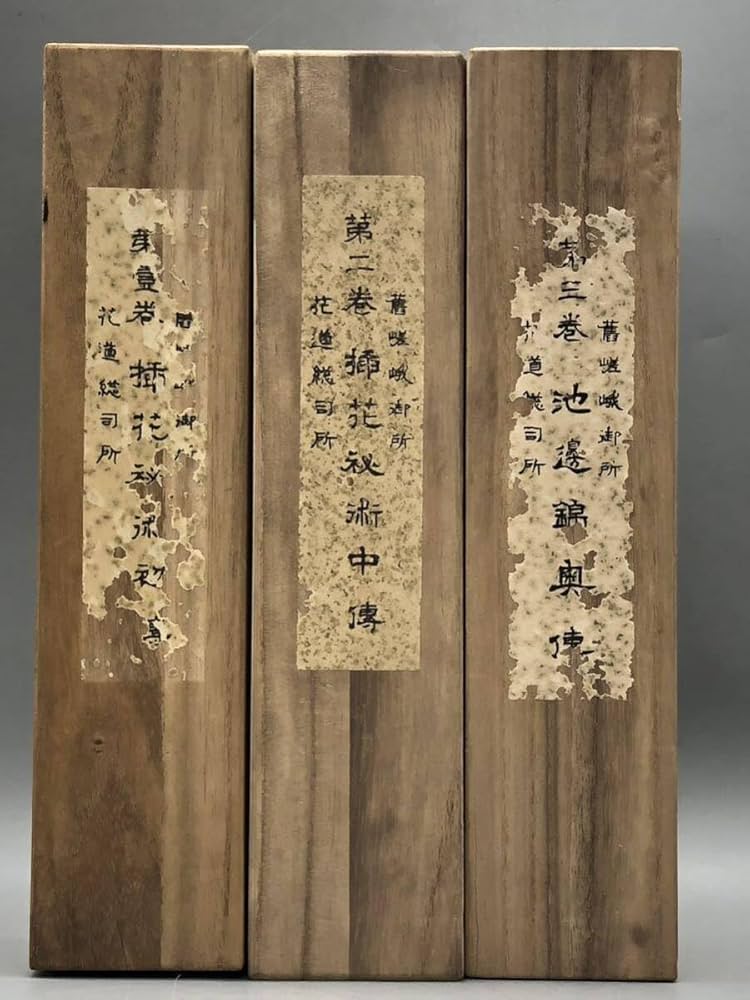 御
第壹卷 挿花祕術初傳
花道総司所
舊嵯峨御所
第二卷 挿花祕術中傳
花道総司所
舊嵯峨御所
第三卷 池邊錦奥傳
花道総司所